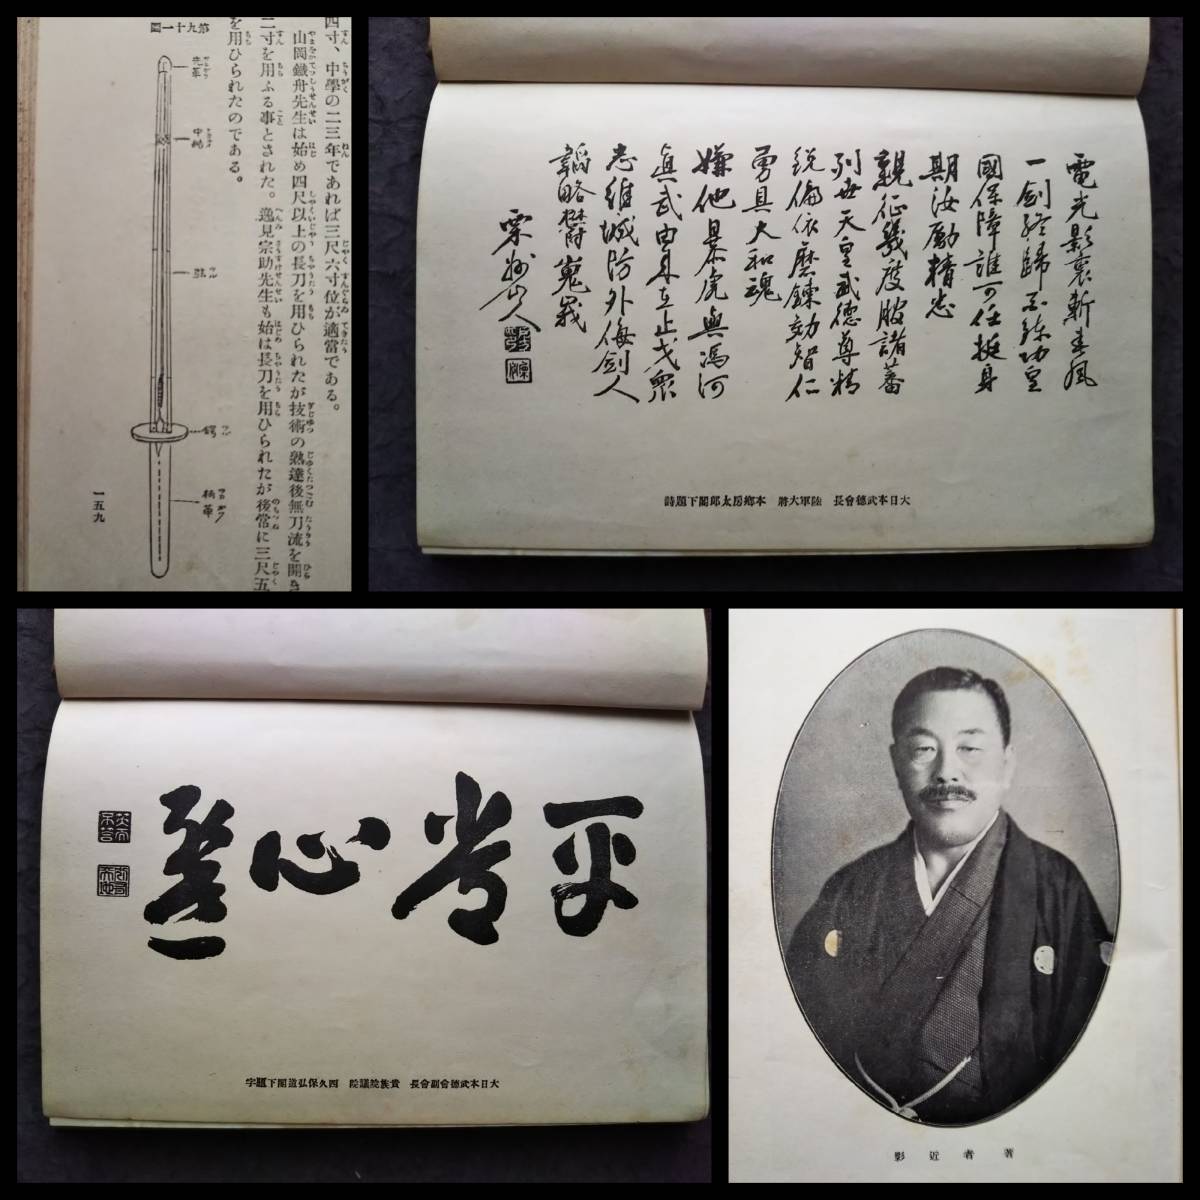 第九十一圖
先革
中結
弦
鍔
柄革
四寸、中學の二三年であれば三尺六寸位が適當である。
山岡鐵舟先生は始め四尺以上の長刀を用ひられたが技術の熟達後無刀流を開き
二寸を用ふる事とされた。逸見宗助先生も始は長刀を用ひられたが後常に三尺五
を用ひられたのである。
一五九
電光影裏斬春風
一剣終歸百練功皇
國保障誰可任挺身
期汝勵精忠
親征幾度服諸蕃
列世天皇武德尊精
銳倫依磨鍊効智仁
勇具大和魂
嫌他暴虎與馮河
眞武由來在止戈衆
志維城防外侮剣人
韜略欝嵬峩
大日本武德會長　陸軍大將　本鄕房太郎閣下題詩
平常心
大日本武德會副會長　貴族院議院　西久保弘道閣下題字
著者近影